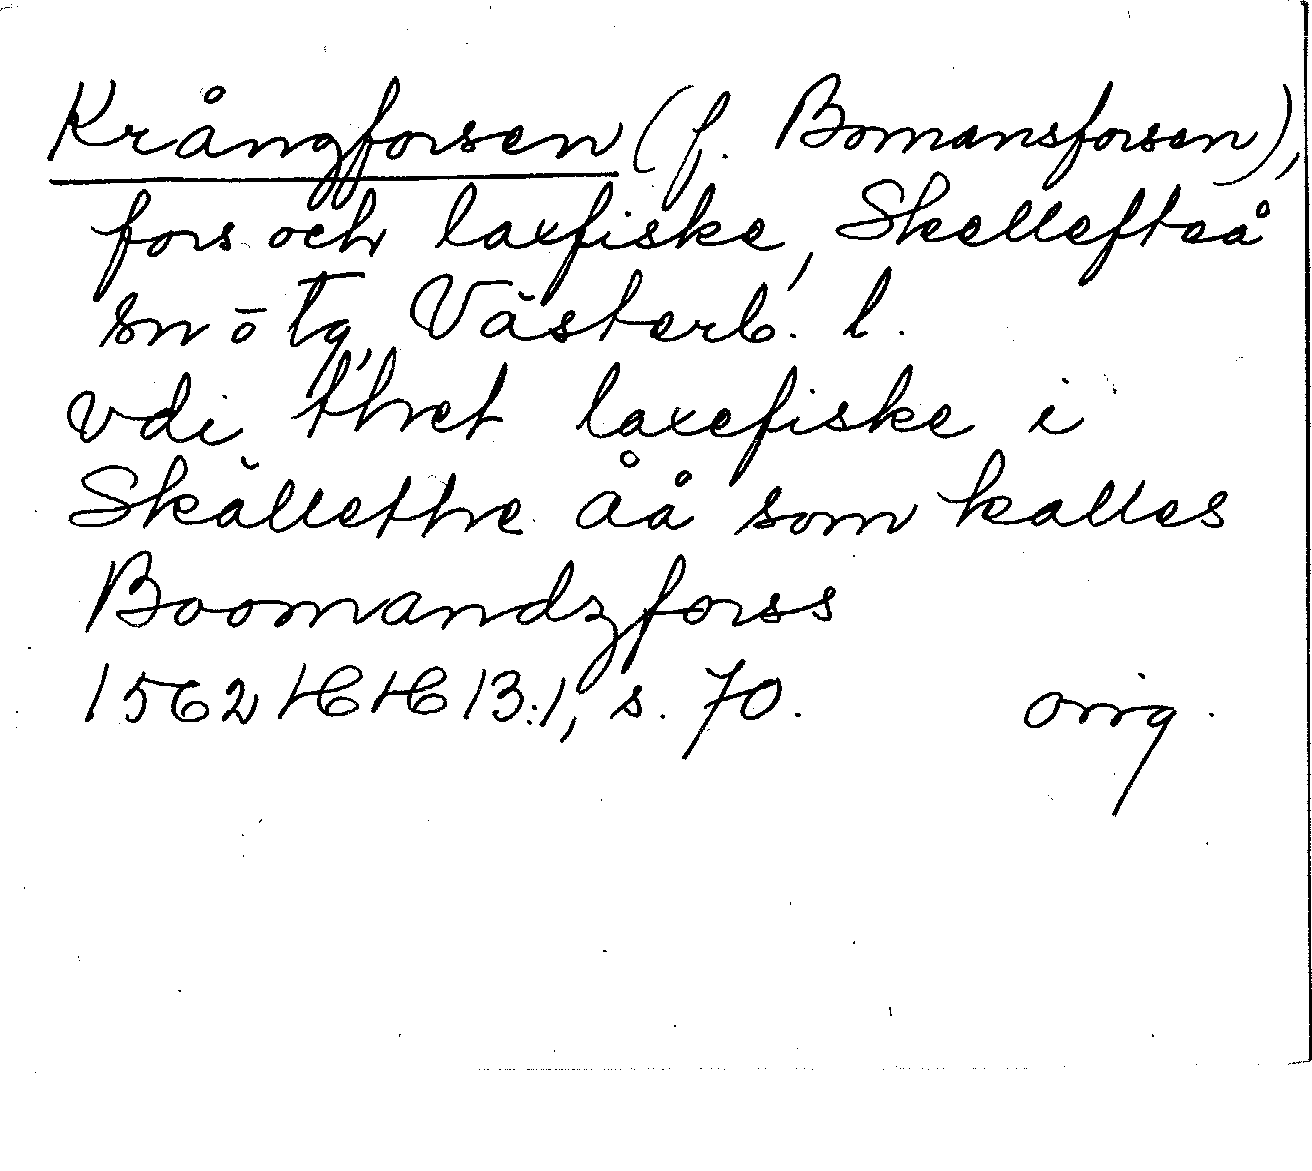 Krångforsen (f. Bomansforsen),
fors och laxfiske, Skellefteå
sn o tg, Västerb. l.
vdi thet laxefiske i
Skällethe åå som kalles
Boomandzforss
1562 HH 13:1, s. 70. orig.